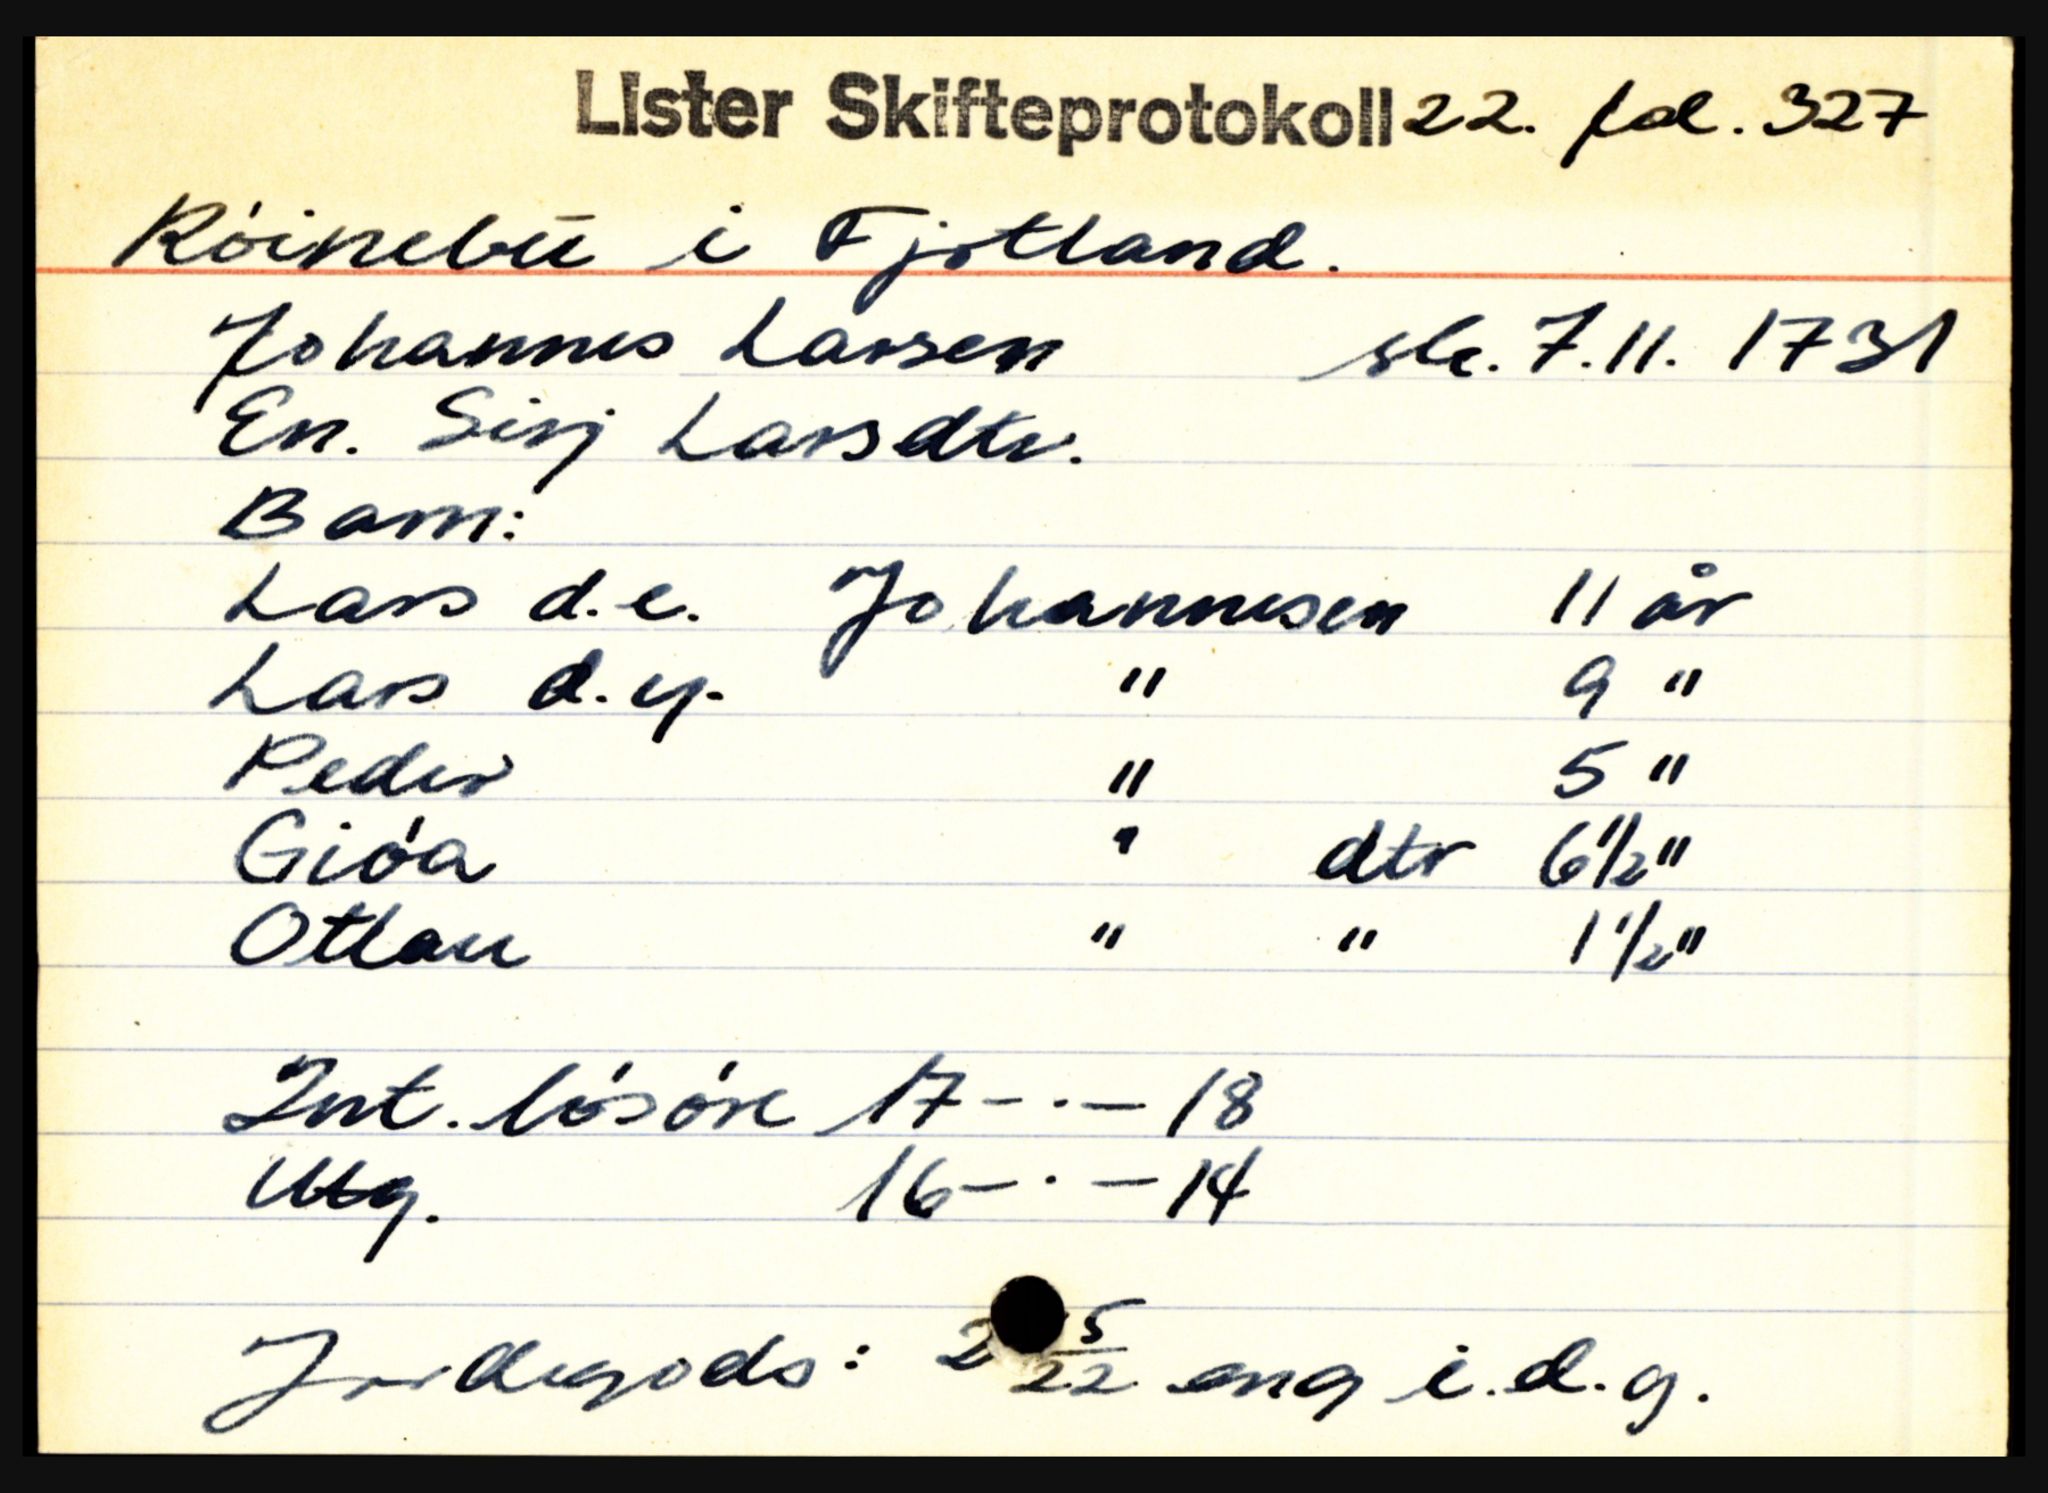 Lister Skifteprotokoll 22. fol. 327
Róinebū i Fjotland.
Johannes Larsen sk. 7.11. 1731
En. Sirj Larsdtr.
Barn:
Lars d.e. Johannesen 11 år
Lars d.y. " 9 "
Peder " 5 "
Gióa " dtr 6 1/2 "
Otlau " " 1 1/2 "
Int. lósóre 17 - . - 18
Utg. 16 - . - 14
Jordegods: 2 5/22 eng i.d.g.